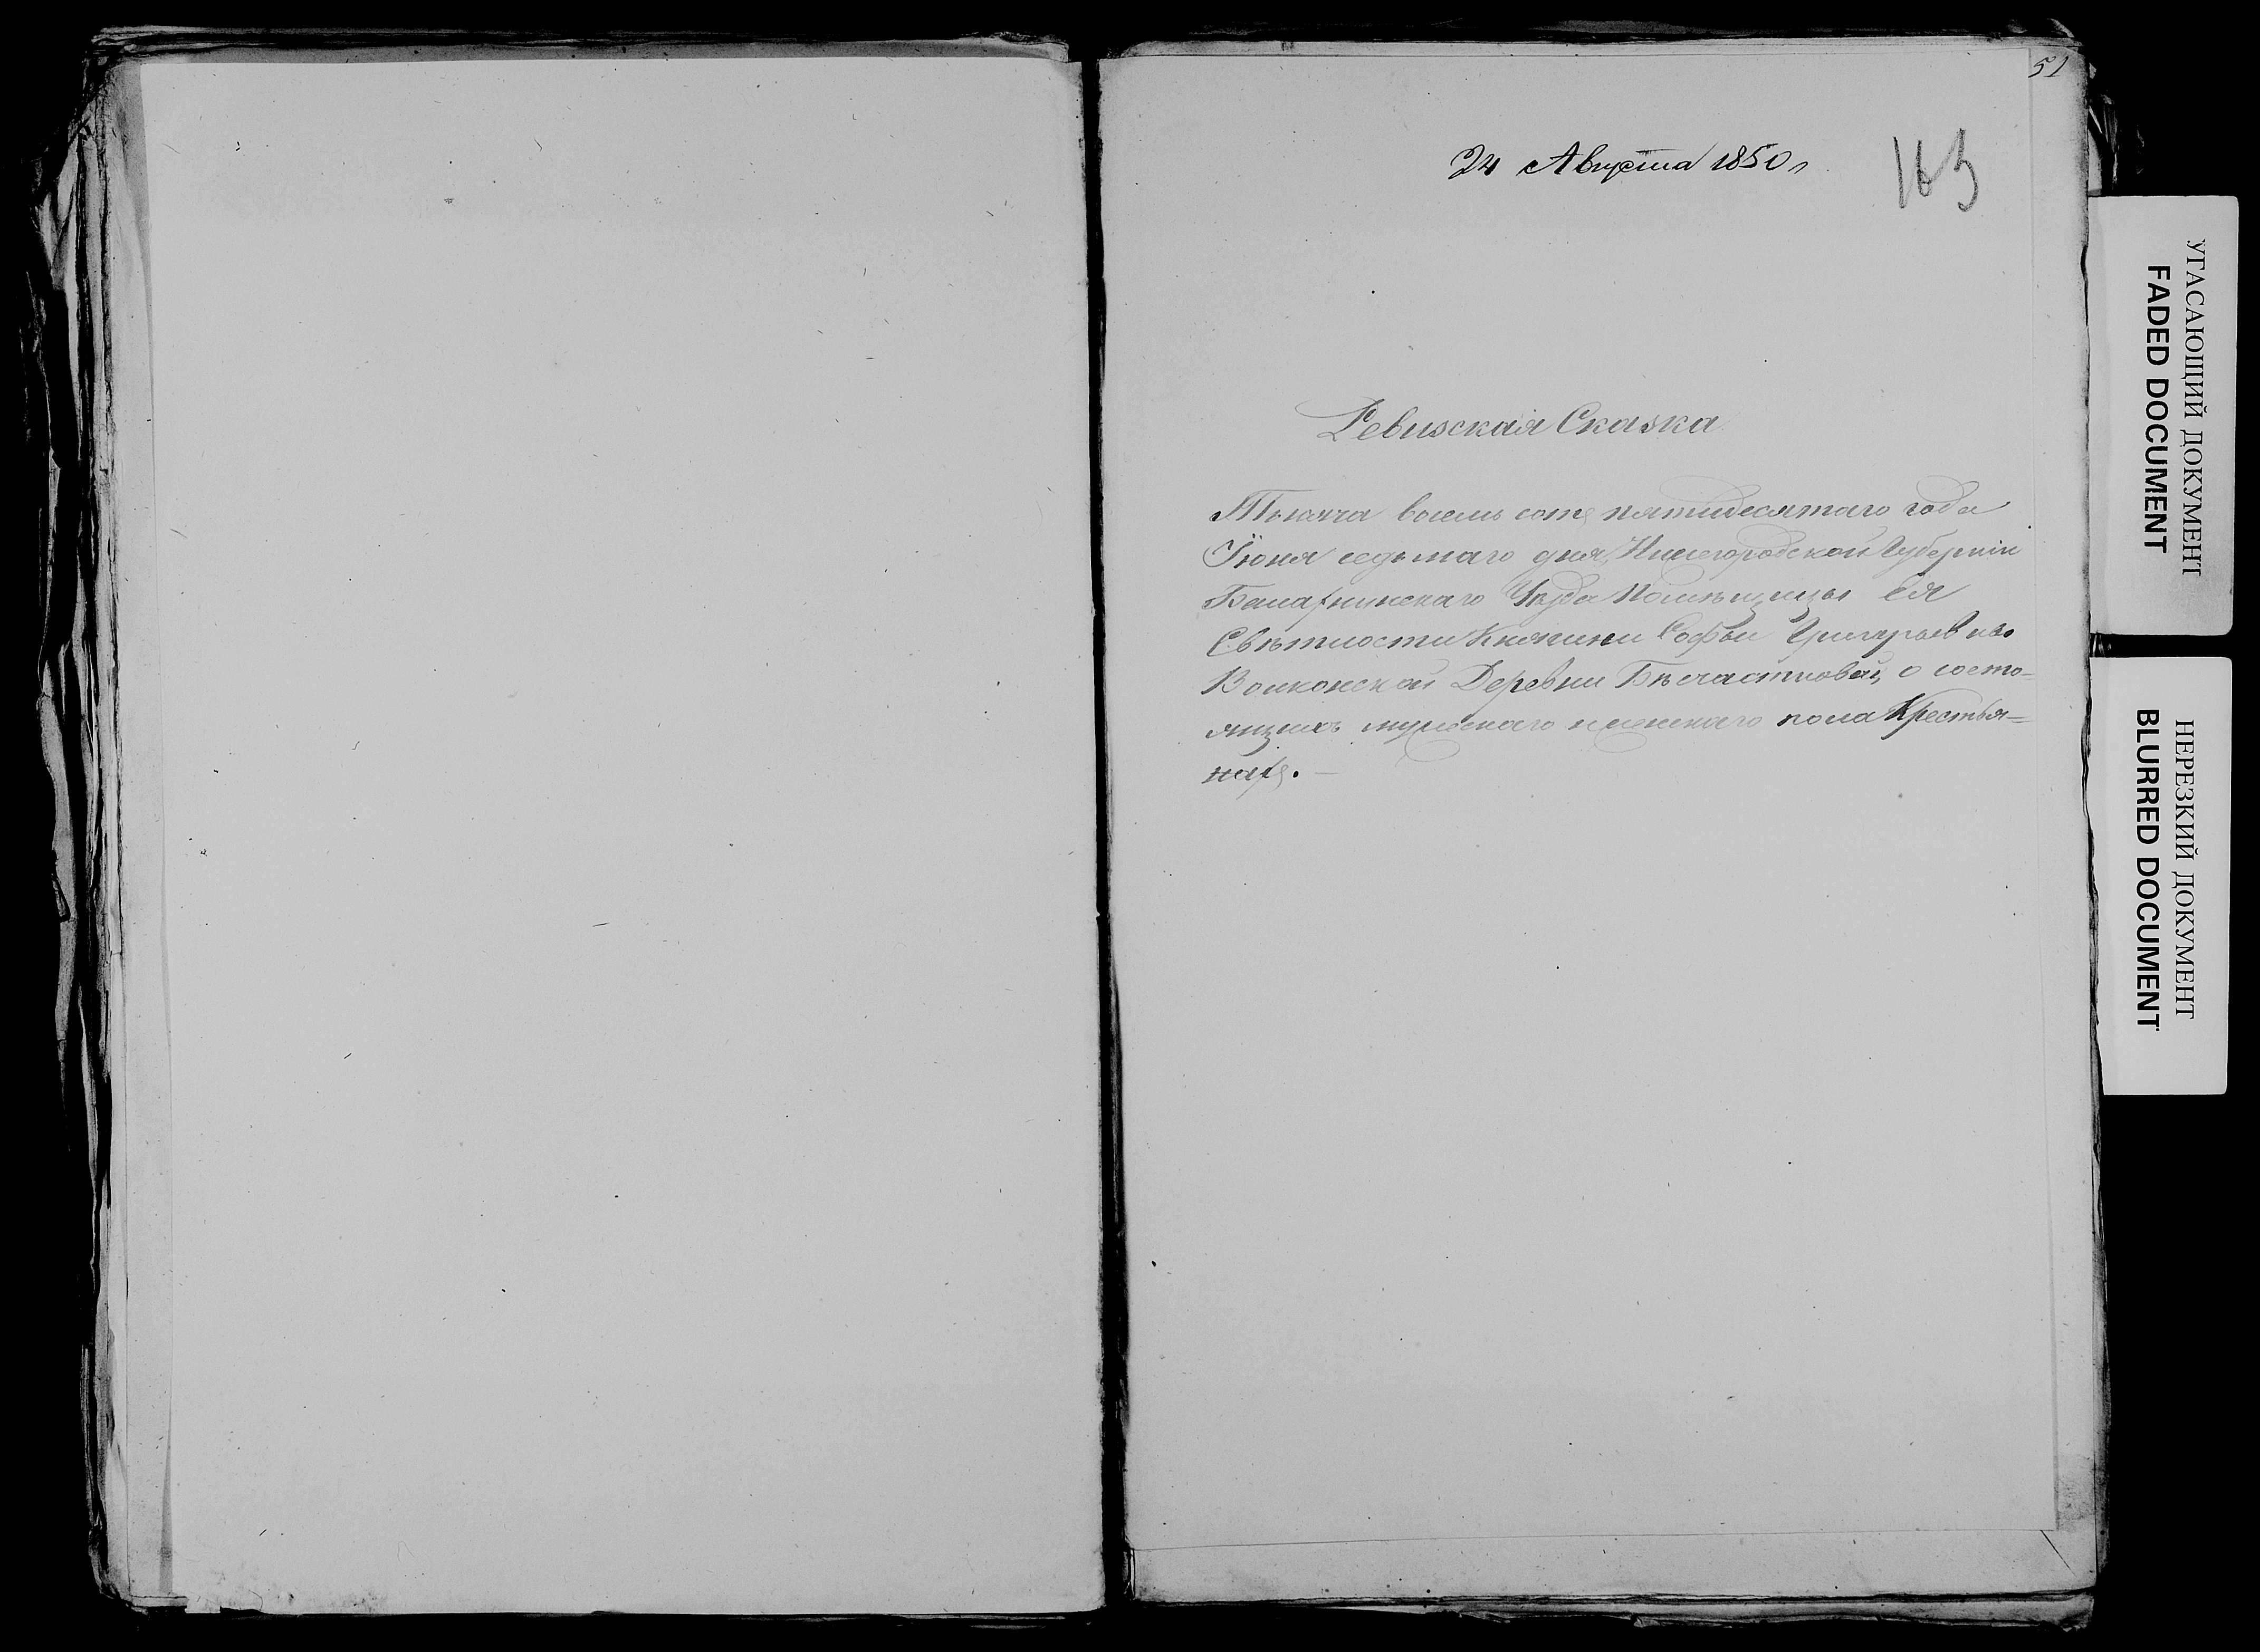 51
24 Августа 1850 г
163
Ревизская Сказка
Тысяча восемь сотъ пятидесятаго года
Іюня седьмаго дня, Нижегородской Губерніи
Балахнинскаго Уѣзда Помѣщицы Ея
Свѣтлости Княгини Софьи Григорьевны
Волконской Деревни Безчастновой, о состо=
ящихъ мужескаго и женскаго пола Крестья=
нахъ.
УГАСАЮЩИЙ ДОКУМЕНТ
FADED DOCUMENT
НЕРЕЗКИЙ ДОКУМЕНТ
BLURRED DOCUMENT